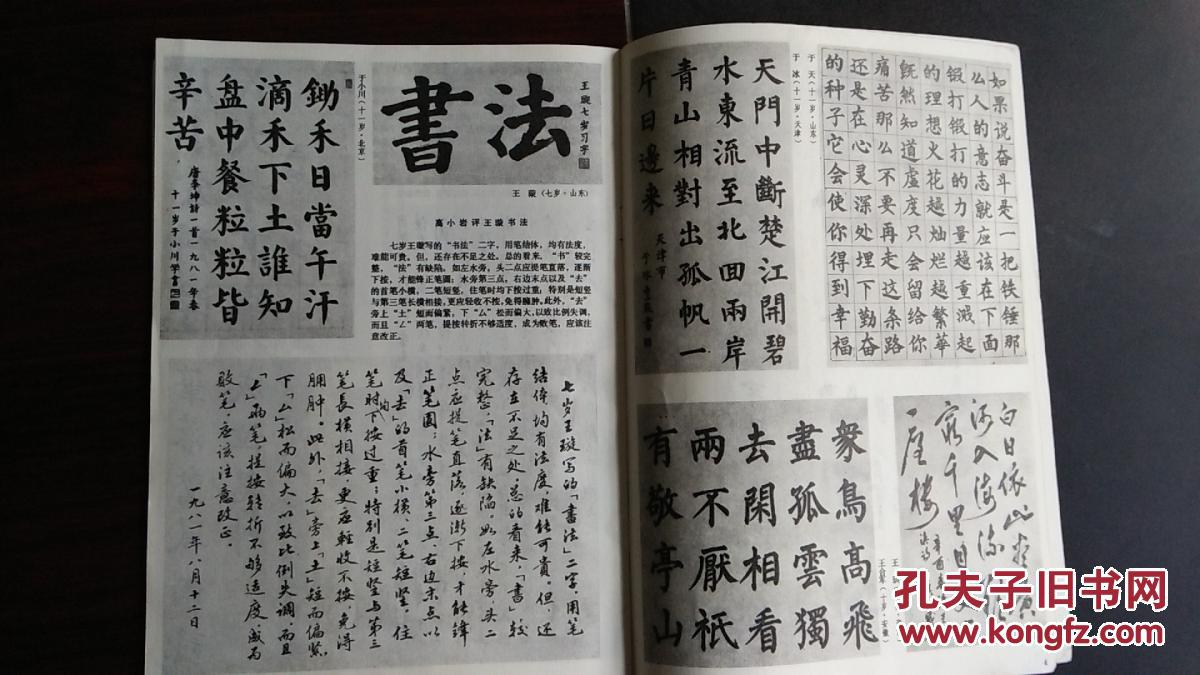 鋤禾日當午汗
滴禾下土誰知
盘中餐粒粒皆
辛苦
唐李坤詩一首一九八一年春
十一岁于小川学書
于小川（十一岁·北京）
書法
王璇七岁习字
王 璇（七岁·山东）
高小岩评王璇书法
七岁王璇写的“书法”二字，用笔结体，均有法度，
难能可贵。但，还存在不足之处。总的看来，“书”较完
整，“法”有缺陷。如左水旁，头二点应提笔直落，逐渐
下按，才能锋正笔圆；水旁第三点，右边末点以及“去”
的首笔小横，二笔短竖，住笔时均下按过重；特别是短竖
与第三笔长横相接，更应轻收不按，免得臃肿。此外，“去”
旁上“土”短而偏紧，下“厶”松而偏大，以致比例失调，
而且“厶”两笔，提按转折不够适度，成为败笔，应该注
意改正。
七岁王璇写的「書法」二字，用笔
结体均有法度，难能可贵。但，还
存在不足之处。总的看来，「書」较
完整，「法」有缺陷。如左水旁头二
点应提笔直落，逐渐下按，才能锋
正笔圆；水旁第三点，右边末点以
及「去」的首笔小横，二笔短竖，住
笔时均下按过重；特别是短竖与第三
笔長横相接，更应輕收不按，免得
臃肿。此外，「去」旁上「土」短而偏紧，
下「厶」松而偏大，以致比例失调，而且
「厶」两笔，提按转折不够适度，成为
败笔，应该注意改正。
一九八一年八月十二日
天門中斷楚江開碧
水東流至北回兩岸
青山相對出孤帆一
片日邊来
天津市
于冰
于 天（十一岁·山东）
于 冰（十一岁·天津）
如果说奋斗是一把铁锤那
么人的意志就应该在下面
锻打锻打的力量越重溅起
的理想火花越灿烂越繁華
既然知道虚度只会留给你
痛苦那么不要再走这条路
还是在心灵深处埋下勤奋
的种子它会使你得到幸福
衆鳥高飛
盡孤雲獨
去閑相看
兩不厭衹
有敬亭山
白日依山尽黄
河入海流
窮千里目
一层楼
孔夫子旧书网
kongfz.com